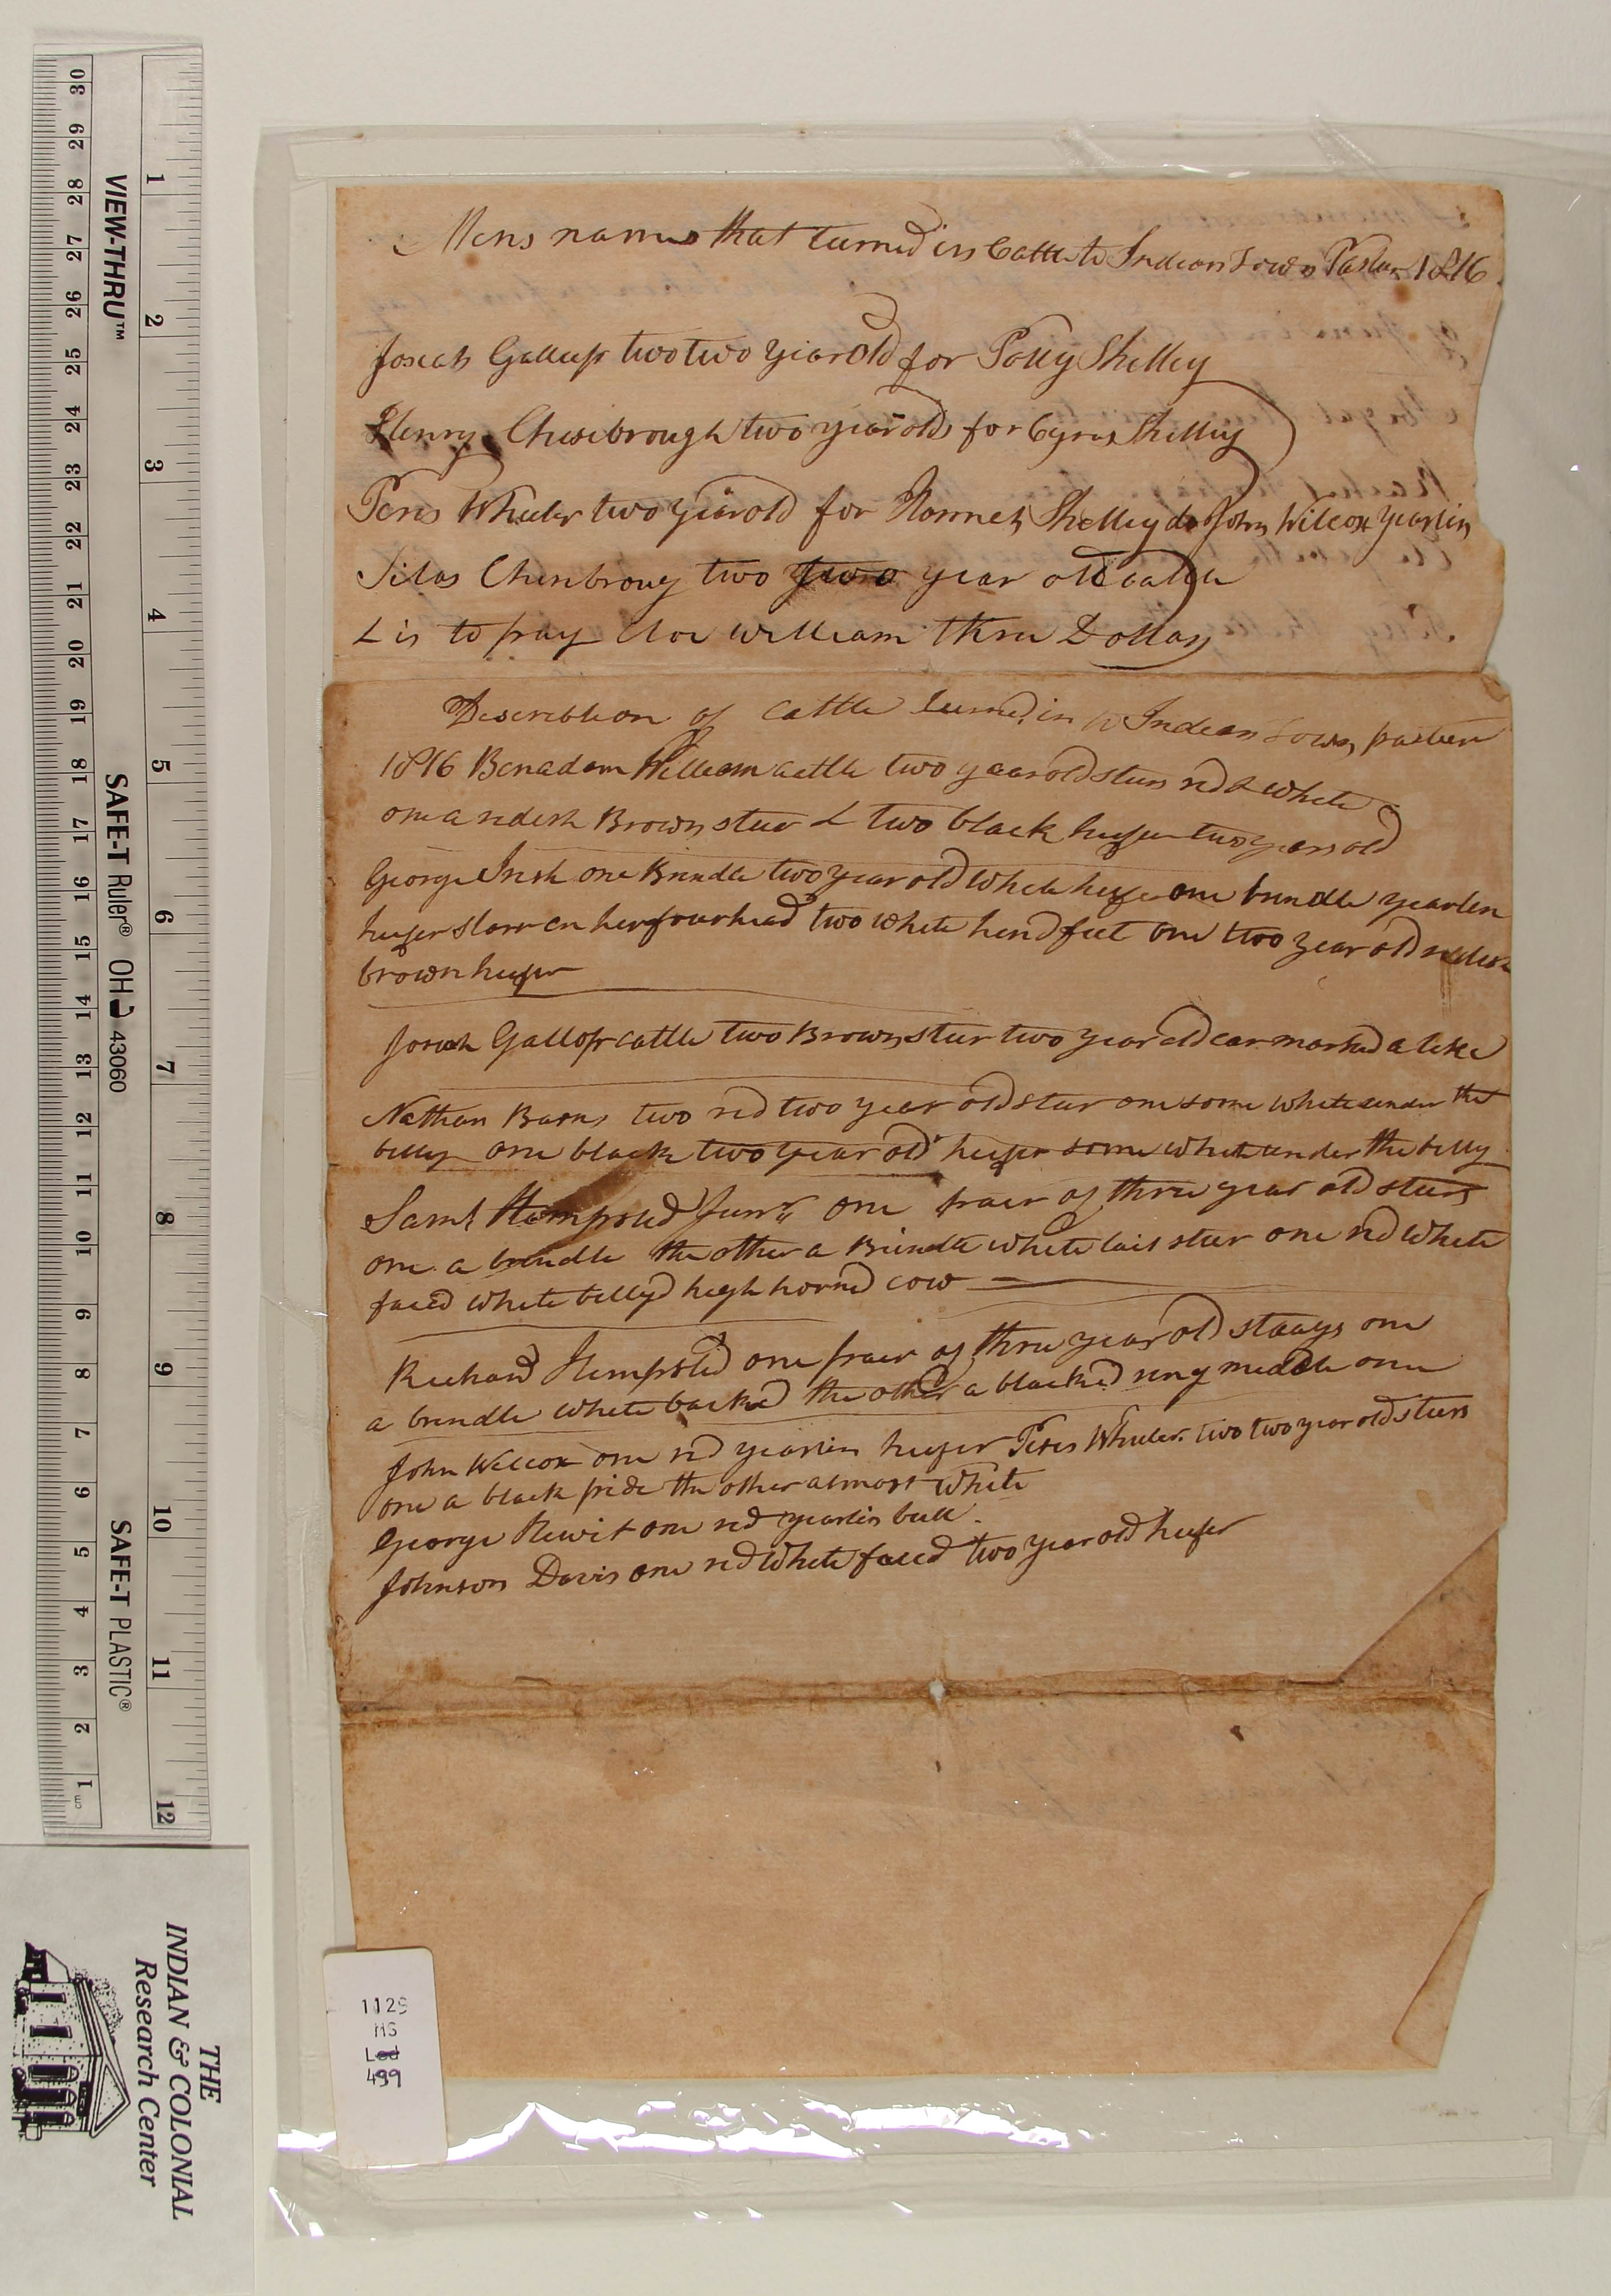 Mens names that turned in Cattle to Indian Town Pastur 1816
Josiah Gallup two two year old for Polly Shelley
Henry Chesebrough two year olds for Cyrus Shelley
Peres Wheeler two year old for Hannah Shelley do John Wilcox yearlin
Silas Chesbroug two two year old cattle
& is to pay Cloe William three Dollars
Descrebtion of Cattle turned in to Indean Town pasteur
1816 Benadam William cattle two yaar old steers red & white
one a redish Brown steer & two black heifer two years old
George Irish one Brindle two year old white heifer one brindle yearlin
heifer starr on her fourhead two white hend feet one two year old redish
brown heifer
Josiah Gallop cattle two Brown steer two year old ear marked a like
Nathan Barns two red two year old steer one some white under the
belly one black two year old heifer some white under the belly
Saml Hempsted Junr one paer of three year old steers
one a brindle the other a Brindle white tail steer one red white
faced white belly'd high horned cow
Richard Hempsted one paer of three year old staays one
a brindle white backed the other a blacked ring medele one
John Wilcox one red yearlin heifer Peres Wheeler two two year old steers
one a black pide the other almost white
George Hewit one red yearlin bull.
Johnson Davis one red white faced two year old heifer
1129
MS
Led
499
VIEW-THRU™
SAFE-T Ruler® OH 43060
SAFE-T PLASTIC®
30 29 28 27 26 25 24 23 22 21 20 19 18 17 16 15 14 13 12 11 10 9 8 7 6 5 4 3 2 1
1 2 3 4 5 6 7 8 9 10 11 12
THE
INDIAN & COLONIAL
Research Center